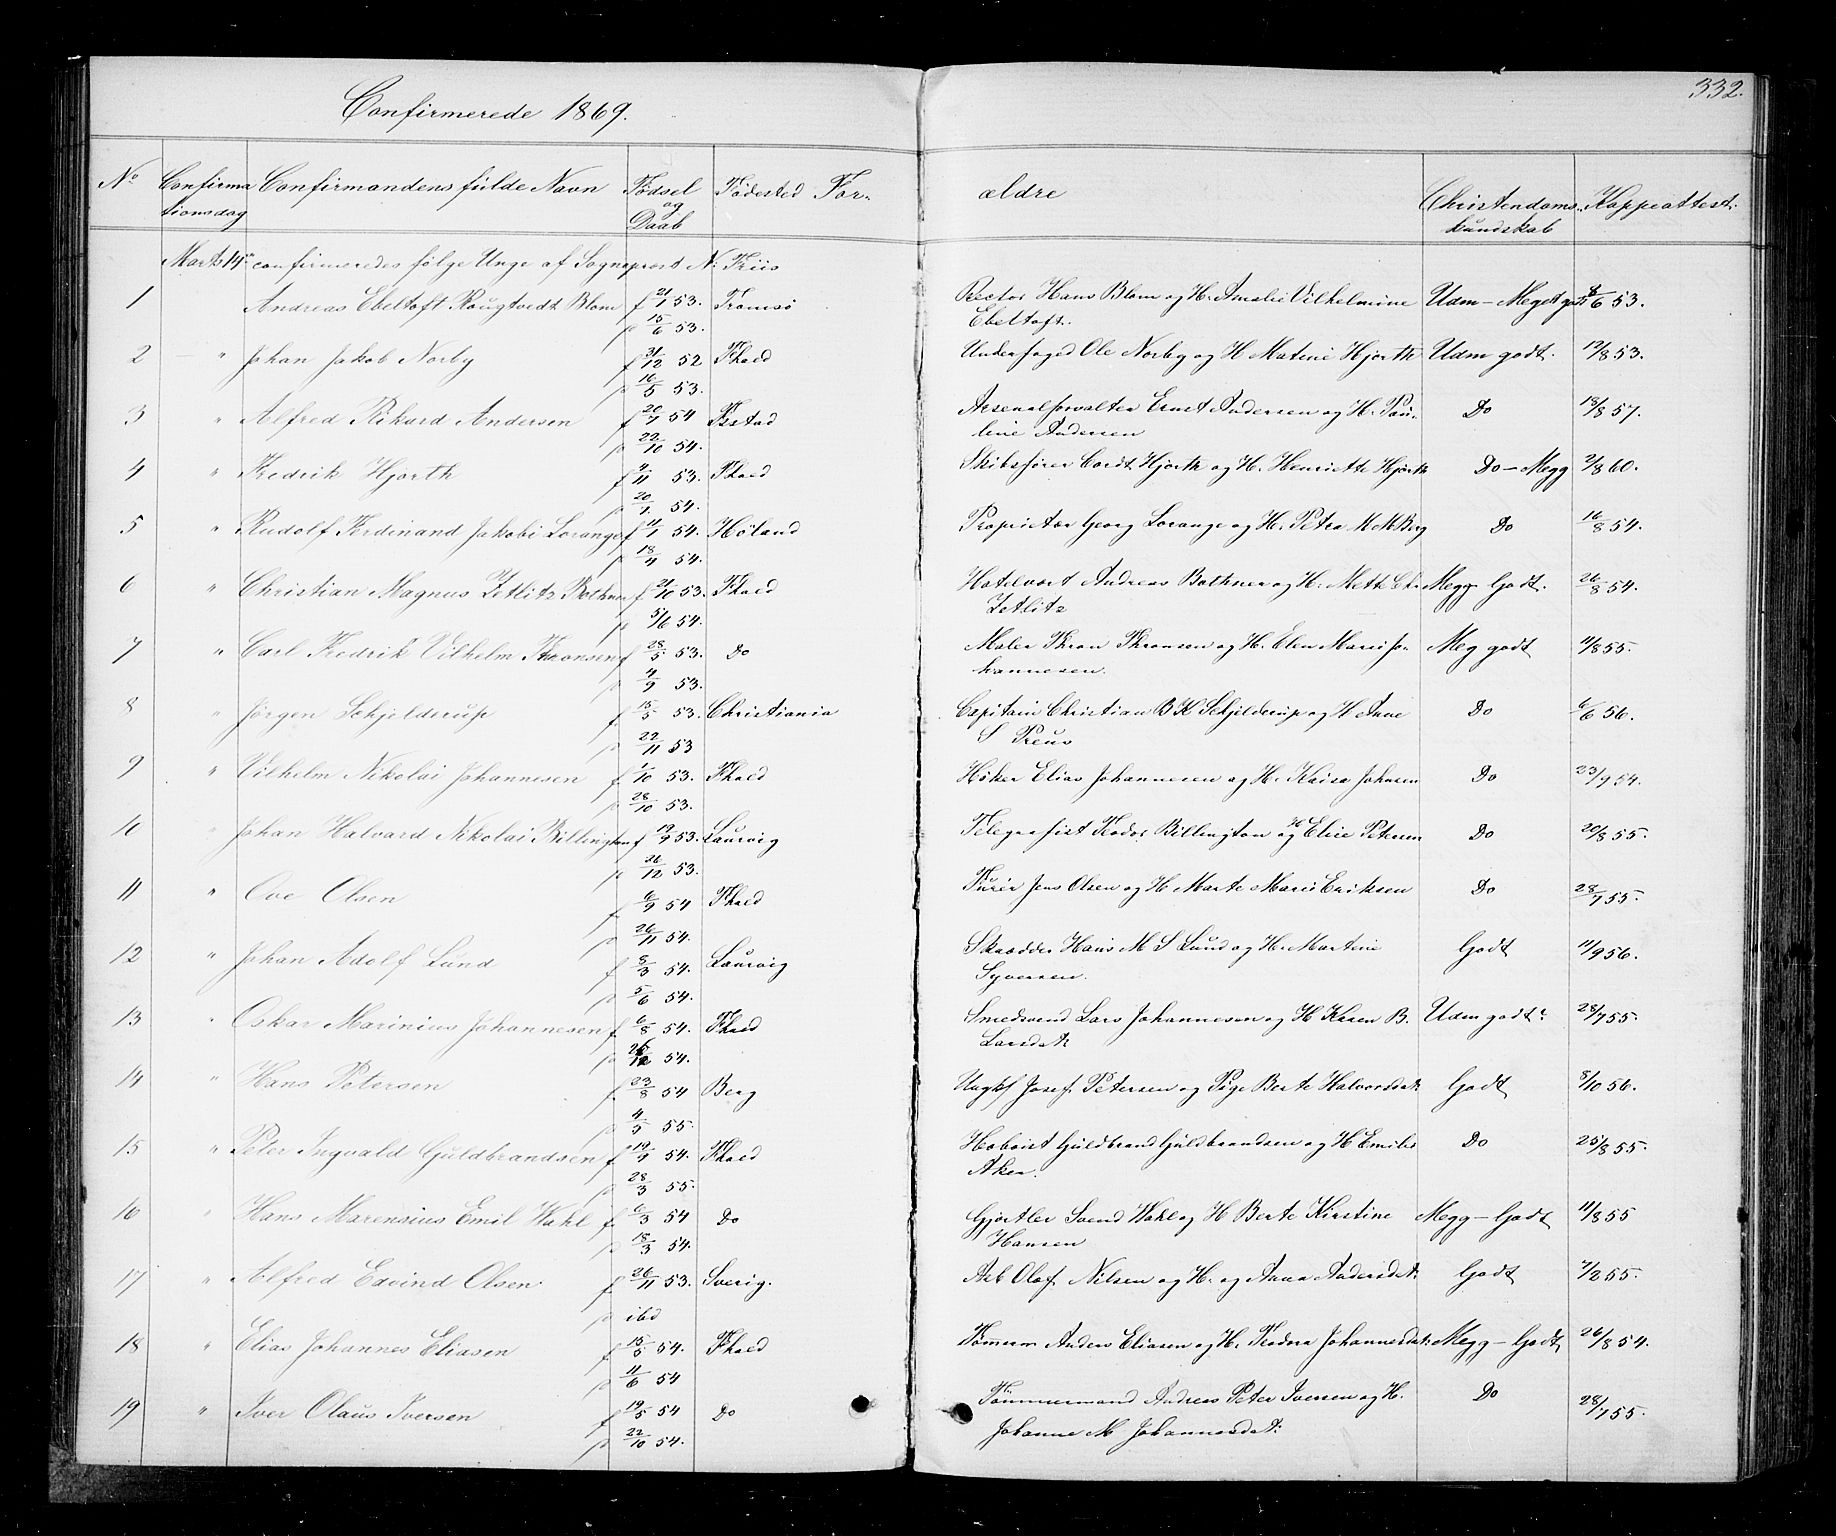 332.
Confirmerede 1869.
No Confirma Confirmandens fulde Navn Fødsel Fødested For- ældre Christendoms- Koppeattest.
tionsdag og kundskab
Daab
Marts 14de confirmeredes følge Unge af Sogneprest N. Friis
1 Andreas Ebeltoft Rougtvedt Blom f 21/1 53. Tromsø Rector Hans Blom og H. Amalie Vilhelmine Udm - Meget godt 8/6 53.
p 15/6 53. Ebeltoft.
2 " Johan Jakob Norby f 31/12 52 Fhald Underfoged Ole Norby og H Matine Hjorth Udm godt. 12/8 53.
p 16/5 53.
3 " Alfred Rikard Andersen f 20/7 54 Fstad Arsenalforvalter Ernst Andersen og H. Pau- Do 18/8 57.
p 22/10 54. line Andersen
4 " Fredrik Hjorth f 9/11 53. Fhald Skibsfører Cordt Hjorth og H. Henriette Hjorth Do - Megg 2/8 60.
p 20/1 54.
5 " Rudolf Ferdinand Jakobi Lorange f 11/1 54. Høland Proprietær Georg Lorange og H. Petra M M Berg Do 16/8 54.
p 18/4 54.
6 " Christian Magnus Zetlitz Bothner f 21/10 53. Fhald Hotelvært Andreas Bothner og H. Mette Chr Megg Godt. 26/8 54.
p 5/6 54. Zetlitz
7 " Carl Fredrik Vilhelm Thronsen f 28/5 53. Do Maler Thron Thronsen og H. Elen Marie Jo- Meg godt 11/8 55.
p 4/9 53. hannesen.
8 " Jørgen Schjelderup f 15/5 53. Christiania Capitain Christian B K Schjelderup og H Anne Do 6/6 56.
p 22/11 53 S Preus
9 " Vilhelm Nikolai Johannesen f 1/10 53. Fhald Høker Elias Johannesen og H. Kaisa Johnsen Do 23/9 54.
p 28/10 53.
10 " Johan Halvard Nikolai Billington f 19/9 53. Laurvig Telegrafist Teodor Billington og H Elise Petersen Do 20/8 55.
p 26/12 53.
11 " Ove Olsen f 6/9 54 Fhald Furer Jens Olsen og H Marte Marie Eriksen Do 28/7 55.
p 26/11 54.
12 " Johan Adolf Lund f 8/3 54. Laurvig Skrædder Hans M S Lund og H. Martine Godt 11/9 56.
p 5/6 54. Syversen.
13 " Oskar Marinius Johannesen f 6/8 54. Fhald Smedsvend Lars Johannesen og H Karen B. Udm godt 28/7 55.
p 26/12 54. Larsdat:
14 " Hans Petersen f. 23/8 54 Berg Ungkl Josef Petersen og Pige Berte Halvorsdat: Godt 8/10 56.
p 4/5 55.
15 " Peter Ingvald Guldbrandsen f 19/9 54. Fhald Hoboist Guldbrand Guldbrandsen og H Emilie Do 25/8 55.
p 28/3 55. Aker.
16 " Hans Marensius Emil Wahl f 6/3 54 Do Gjørtler Svend Wahl og H Berte Kirstine Megg - Godt 11/8 55
p 18/3 54. Hansen
17 " Alfred Edvind Olsen f 26/11 53. Sverig. Arb Olof Nilsen og H. og Anna Andersdat: Godt 7/2 55.
p ibd
18 " Elias Johannes Eliasen f 15/5 54. Fhald Tømerm Anders Eliasen og H. Teodora Johannesdat: Megg - Godt 26/8 54.
p 11/6 54
19 " Iver Olaus Iversen f 19/5 54 Do Tømmermand Andreas Peter Iversen og H. Do 28/7 55.
p 22/10 54. Johanne M Johannesdat: